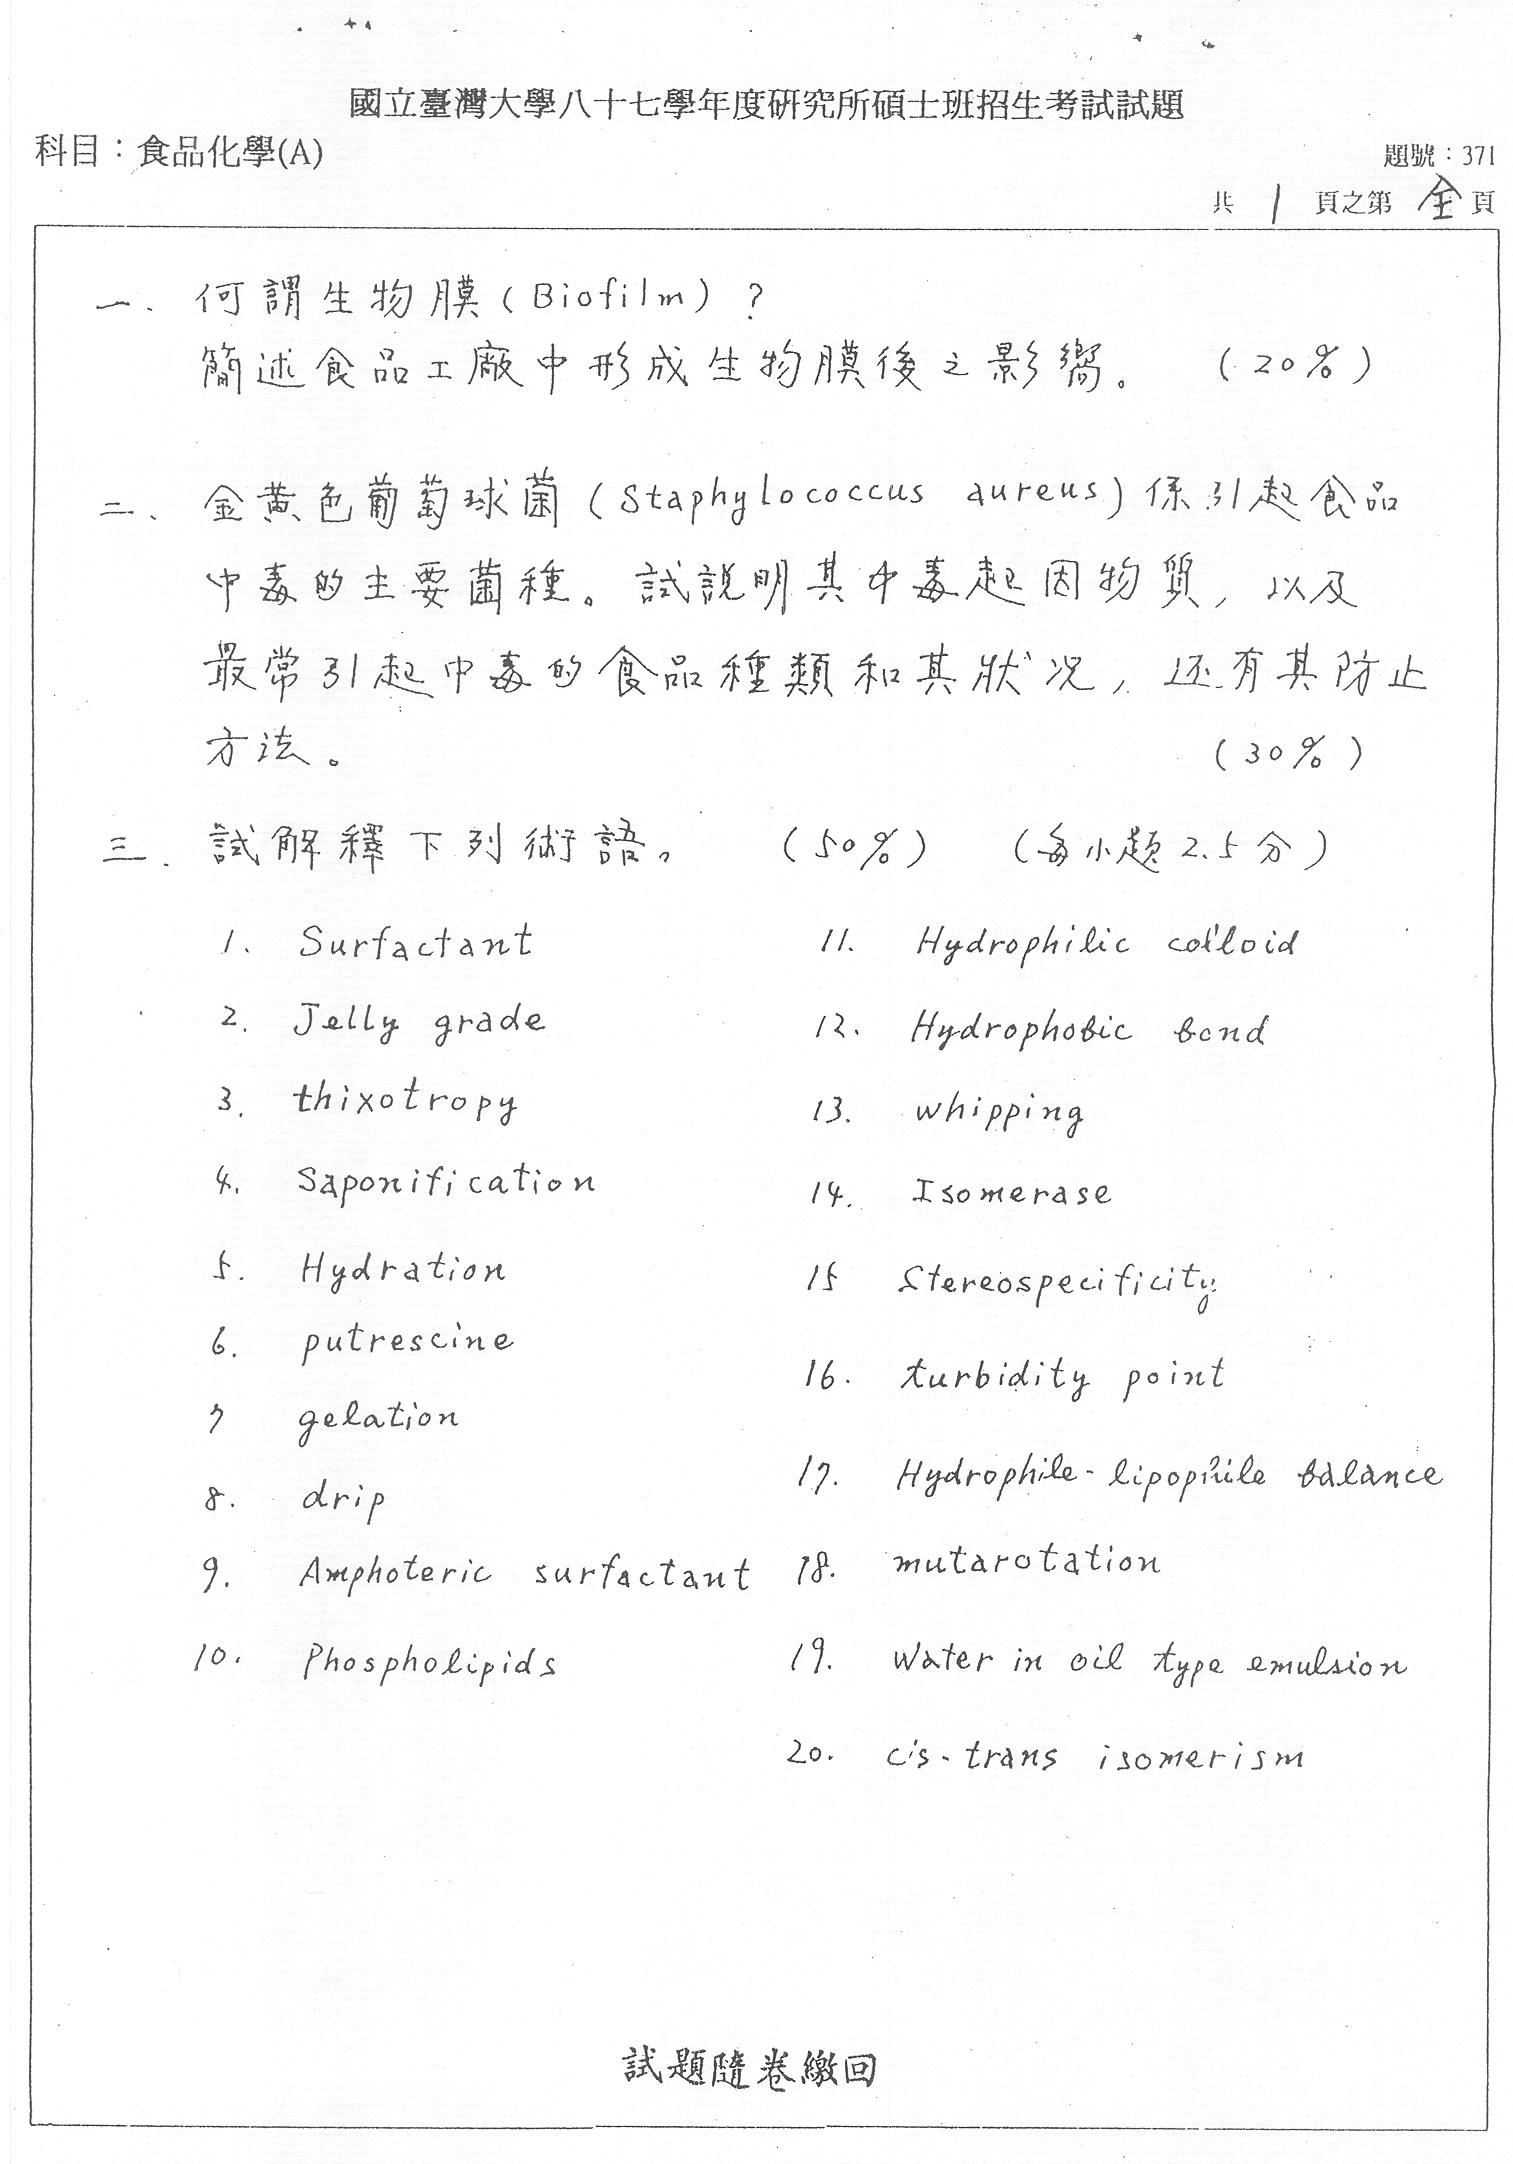 國立臺灣大學八十七學年度研究所碩士班招生考試試題
科目：食品化學(A)
題號：371
共 1 頁之第 全 頁
一、何謂生物膜(Biofilm)？
簡述食品工廠中形成生物膜後之影嚮。 (20%)
二、金黃色葡萄球菌(Staphylococcus aureus)係引起食品
中毒的主要菌種。試說明其中毒起因物質，以及
最常引起中毒的食品種類和其狀況，还有其防止
方法。 (30%)
三、試解釋下列術語。 (50%) (每小題2.5分)
1. Surfactant
2. Jelly grade
3. thixotropy
4. Saponification
5. Hydration
6. putrescine
7 gelation
8. drip
9. Amphoteric surfactant
10. Phospholipids
11. Hydrophilic colloid
12. Hydrophobic bond
13. whipping
14. Isomerase
15 Stereospecificity
16. turbidity point
17. Hydrophile-lipophile balance
18. mutarotation
19. Water in oil type emulsion
20. cis-trans isomerism
試題隨卷繳回